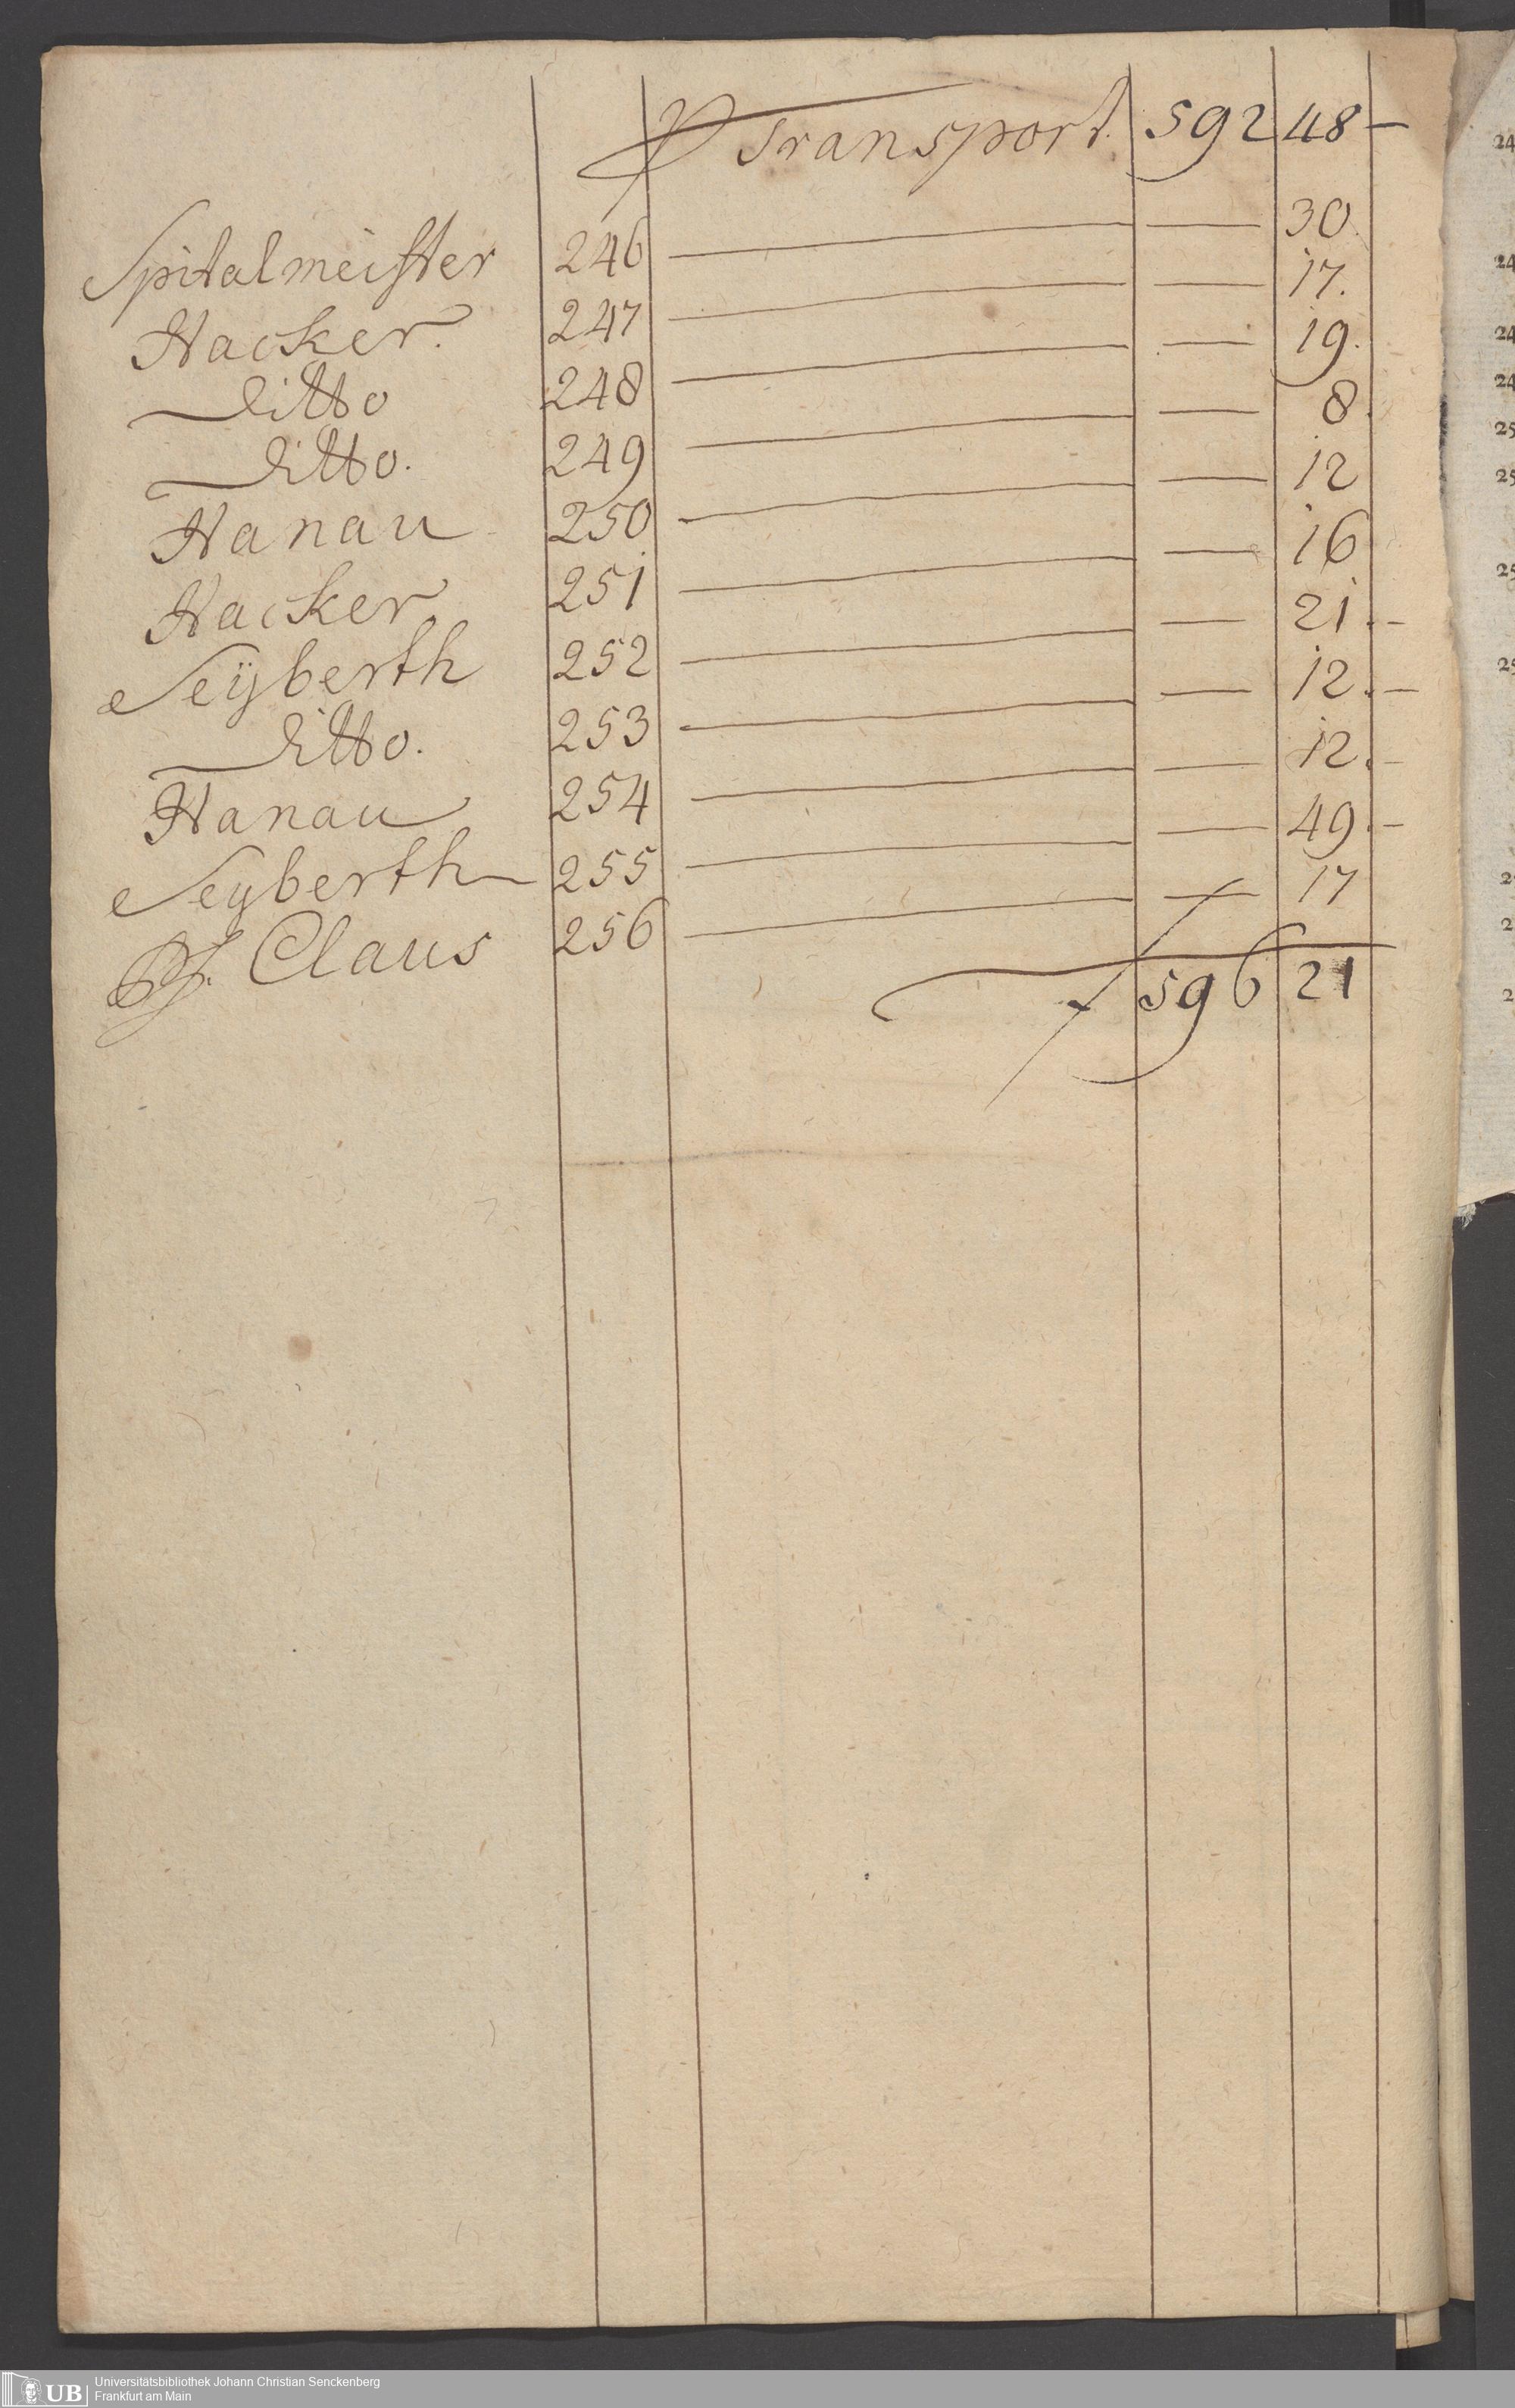 Transport. 592 48 —
Spitalmeister 246 — — 30.
Hacker. 247 — — 17.
ditto 248 — — 19.
ditto. 249 — — 8.
Hanau 250 — — 12
Hacker 251 — — 16
Seÿberth 252 — — 21. —
ditto. 253 — — 12. —
Hanau 254 — — 12. —
Seyberth 255 — — 49. —
Claus 256 — — 17
596 21
24
24
24
24
25
25
25
25
2
2
2
UB Universitätsbibliothek Johann Christian Senckenberg
Frankfurt am Main